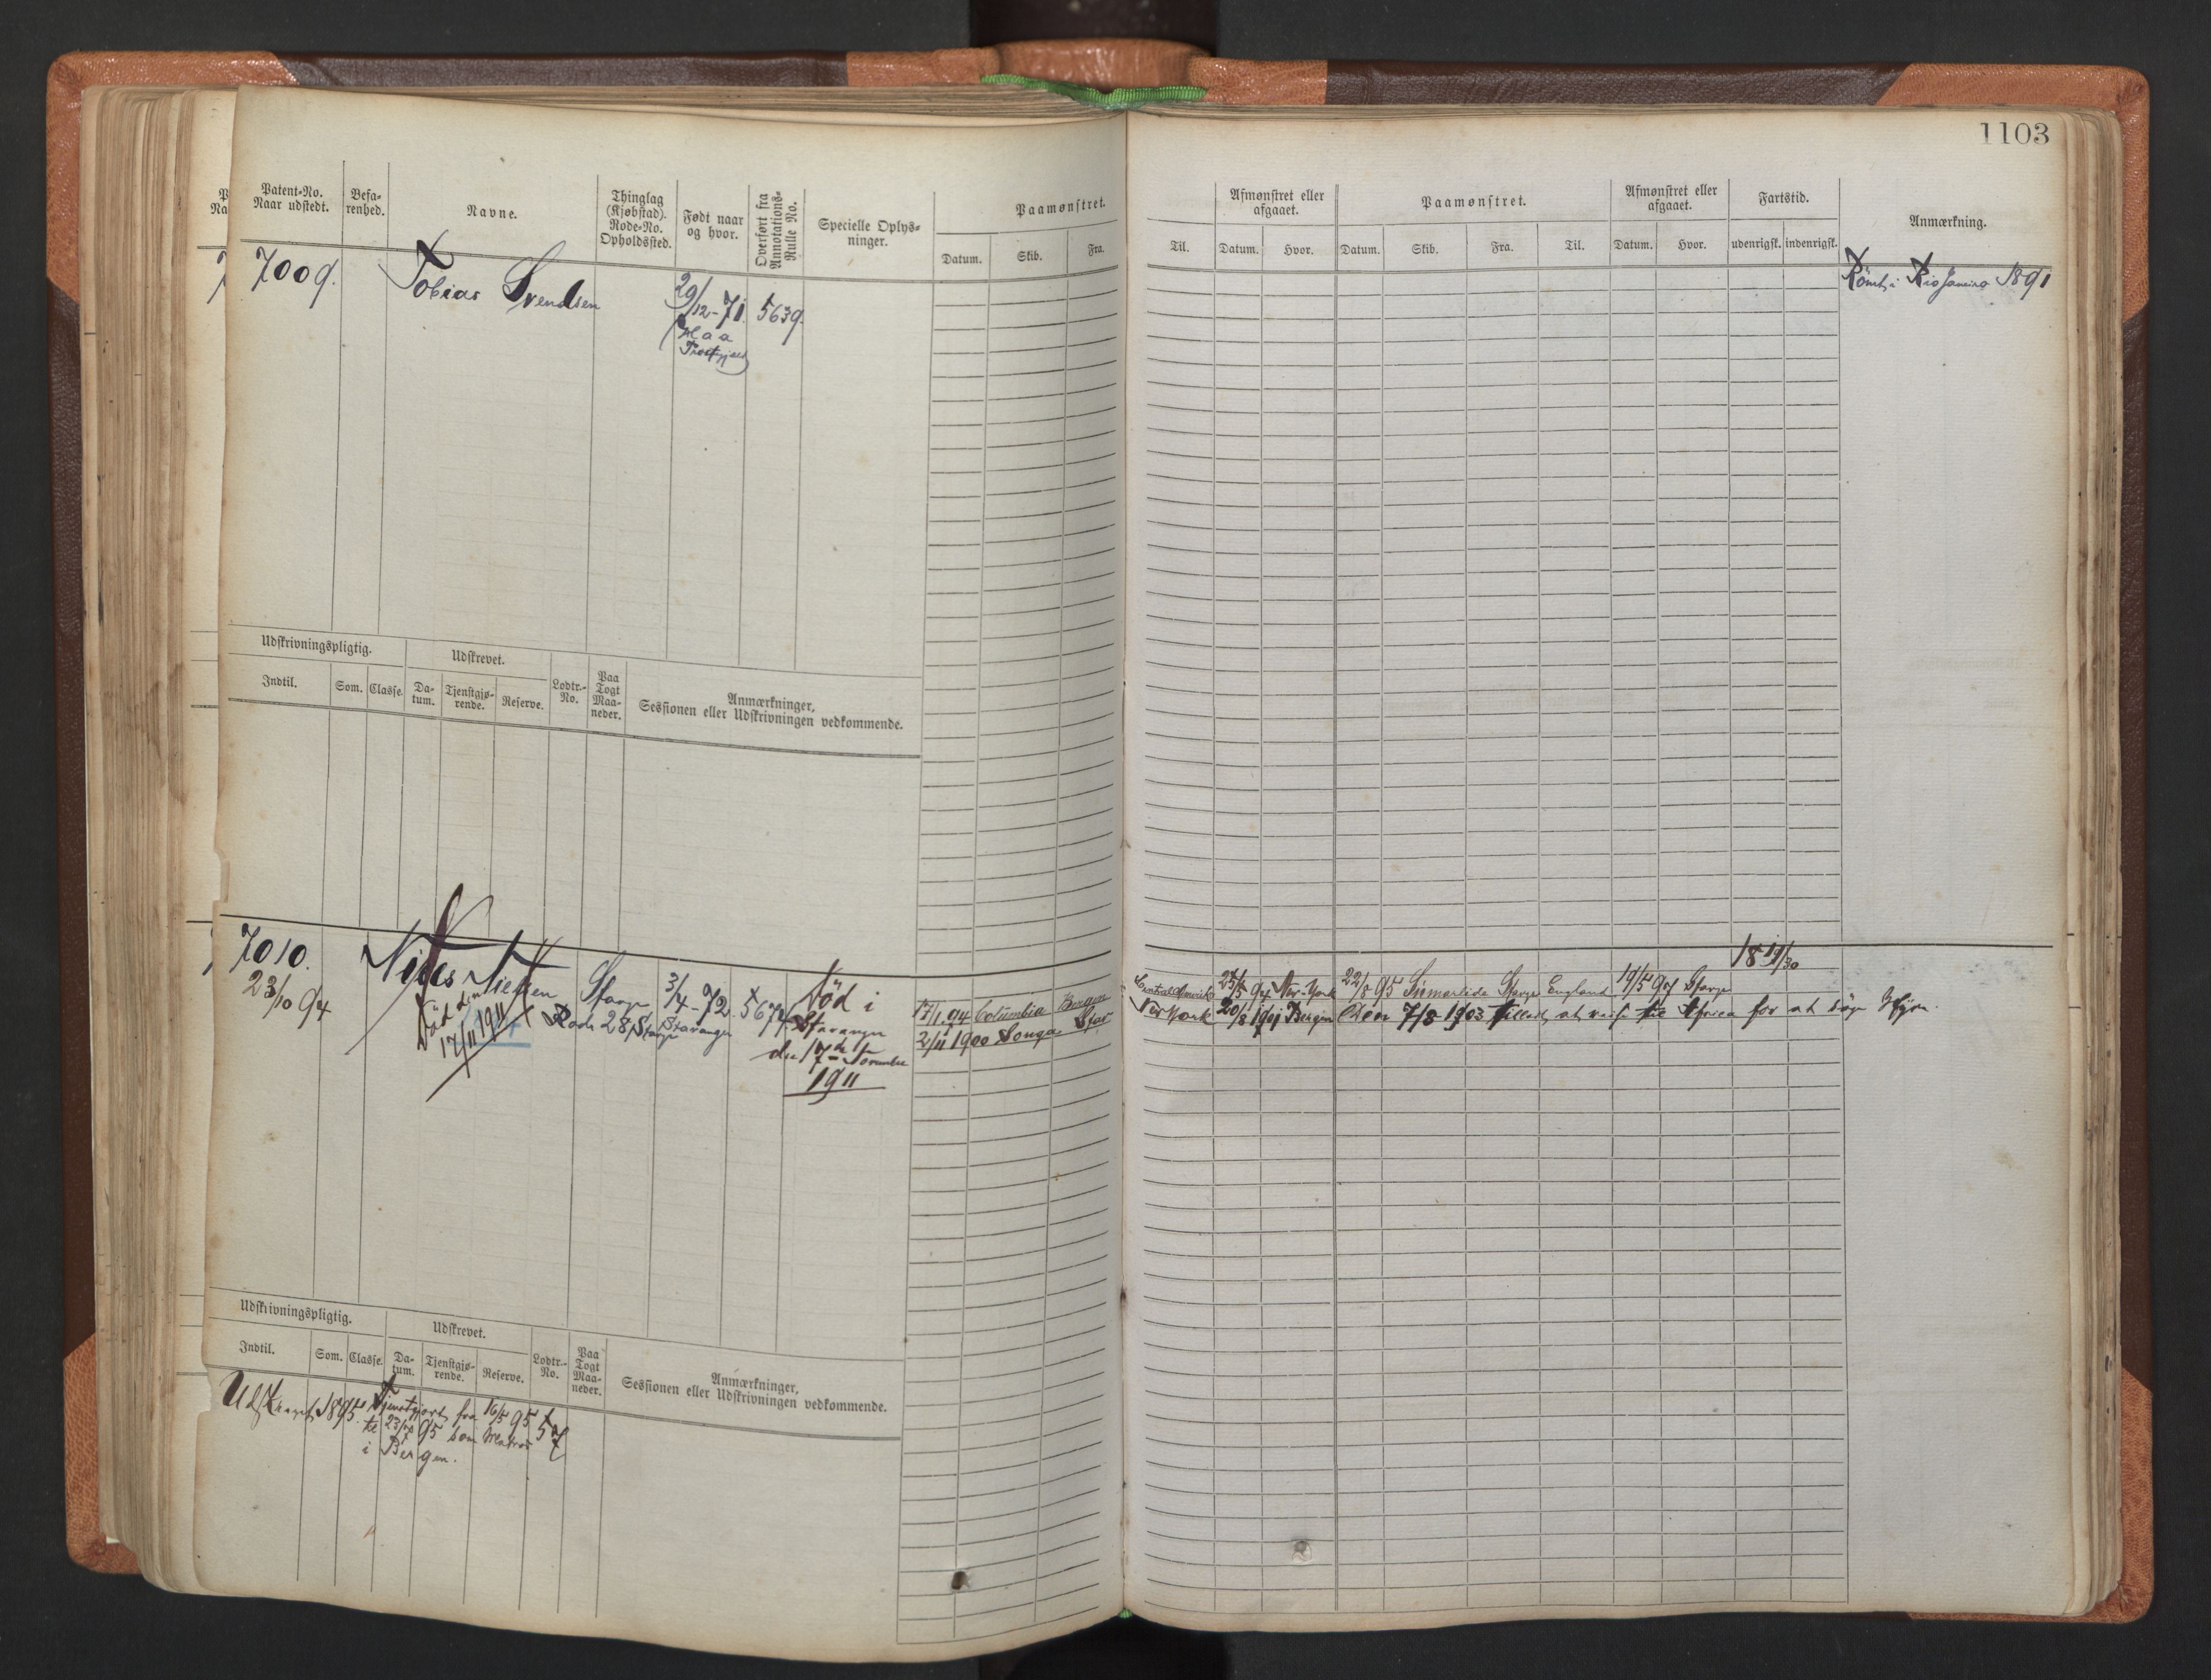 1103
Patent-No. Naar udstedt.
Befa-renhed.
Navne.
Thinglag (Kjøbstad). Rode-No. Opholdssted.
Født naar og hvor.
Overført fra Annotations-Rulle No.
Specielle Oplys-ninger.
Paamønstret.
Datum. Skib. Fra.
Til.
Afmønstret eller afgaaet.
Datum. Hvor.
Paamønstret.
Datum. Skib. Fra. Til.
Afmønstret eller afgaaet.
Datum. Hvor.
Fartstid.
udenrigsk. indenrigsk.
Anmærkning.
7009. Tobias Svendsen 29/12-71. 5639.
Haa
Præstgjæld
Römt i Rio Janeiro 1891
Udskrivningspligtig.
Indtil. Som. Classe.
Udskrevet.
Da-tum. Tjenstgjø-rende. Reserve.
Lodtr.-No.
Paa Togt Maa-neder.
Anmærkninger,
Sessionen eller Udskrivningen vedkommende.
7010.
23/10 94
Niels Nielsen
Död den
17/11 1911
Stavgr
Rode 28 Stavgr
3/4-72.
Stavanger
5674
Död i
Stavanger
den 17de November
1911
17/1 94 Columbia Bergen
2/11 1900 Songa Stav
Central Amerik 25/5 94 New-York 22/8 95 Stavgr England 19/5 97 Stavgr
18 19/30
New York 20/8 1901 Bergen
7/8 1903 tilladt at reise til Africa for at söge Hyre.
Udskrivningspligtig.
Indtil. Som. Classe.
Udskrevet.
Da-tum. Tjenstgjø-rende. Reserve.
Lodtr.-No.
Paa Togt Maa-neder.
Anmærkninger,
Sessionen eller Udskrivningen vedkommende.
1895. Tjenstgjort fra 16/5 95
til 95 som Matros
i Bergen.